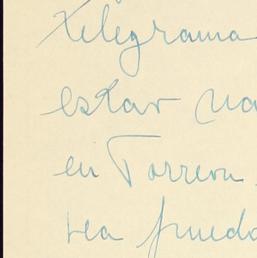 telegrama
estar ma
en Torreon
sea pueda